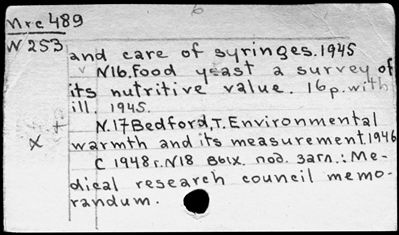 6
Mrc 489
W 253
and care of syringes. 1945
N16. Food yeast a survey of
its nutritive value. 16 p. with
ill. 1945.
N.17 Bedford, T. Environmental
warmth and its measurement. 1946
С 1948 г. N18 вых. под. загл.: Me-
dical research council memo-
randum.
x +